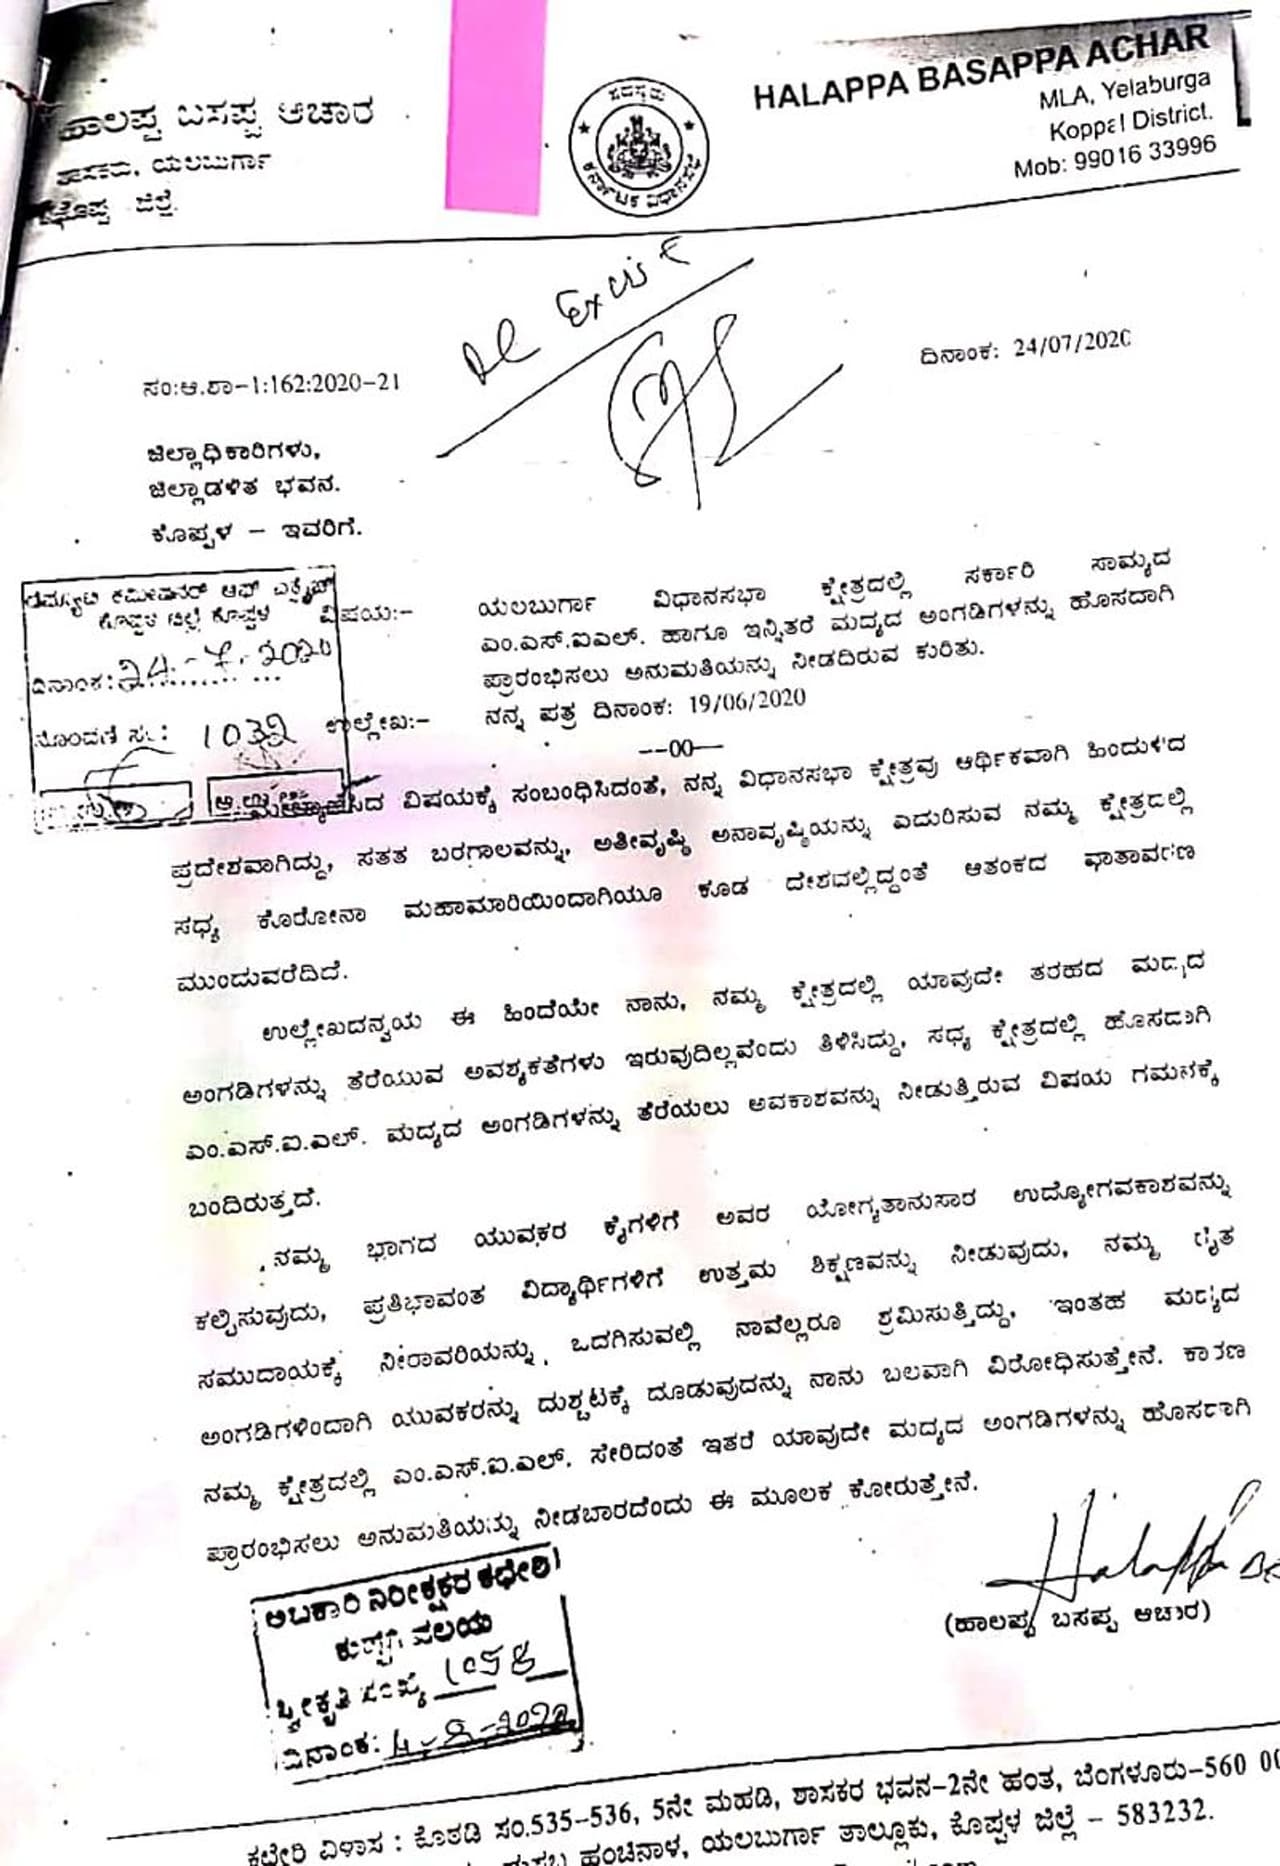 ಹಾಲಪ್ಪ ಬಸಪ್ಪ ಆಚಾರ
ಶಾಸಕರು, ಯಲಬುರ್ಗಾ
ಜಿಲ್ಲೆ.
ಸದಸ್ಯರು
ಕರ್ನಾಟಕ ವಿಧಾನಸಭೆ
HALAPPA BASAPPA ACHAR
MLA, Yelaburga
Koppal District.
Mob: 99016 33996
DC Excise
ಸಂ:ಆ.ಶಾ-1:162:2020-21
ದಿನಾಂಕ: 24/07/2020
ಜಿಲ್ಲಾಧಿಕಾರಿಗಳು,
ಜಿಲ್ಲಾಡಳಿತ ಭವನ.
ಕೊಪ್ಪಳ - ಇವರಿಗೆ.
ಡೆಪ್ಯೂಟಿ ಕಮೀಷನರ್ ಆಫ್ ಎಕ್ಸೈಜ್
ಕೊಪ್ಪಳ ಜಿಲ್ಲೆ ಕೊಪ್ಪಳ
ದಿನಾಂಕ: 24-7-2020
ನೊಂದಣಿ ಸಂ: 1032
ವಿಷಯ:- ಯಲಬುರ್ಗಾ ವಿಧಾನಸಭಾ ಕ್ಷೇತ್ರದಲ್ಲಿ ಸರ್ಕಾರಿ ಸಾಮ್ಯದ
ಎಂ.ಎಸ್.ಐಎಲ್. ಹಾಗೂ ಇನ್ನಿತರೆ ಮದ್ಯದ ಅಂಗಡಿಗಳನ್ನು ಹೊಸದಾಗಿ
ಪ್ರಾರಂಭಿಸಲು ಅನುಮತಿಯನ್ನು ನೀಡದಿರುವ ಕುರಿತು.
ಉಲ್ಲೇಖ:- ನನ್ನ ಪತ್ರ ದಿನಾಂಕ: 19/06/2020
--00--
ವಿಷಯಕ್ಕೆ ಸಂಬಂಧಿಸಿದಂತೆ, ನನ್ನ ವಿಧಾನಸಭಾ ಕ್ಷೇತ್ರವು ಆರ್ಥಿಕವಾಗಿ ಹಿಂದುಳಿದ
ಪ್ರದೇಶವಾಗಿದ್ದು, ಸತತ ಬರಗಾಲವನ್ನು, ಅತೀವೃಷ್ಠಿ ಅನಾವೃಷ್ಠಿಯನ್ನು ಎದುರಿಸುವ ನಮ್ಮ ಕ್ಷೇತ್ರದಲ್ಲಿ
ಸಧ್ಯ ಕೊರೋನಾ ಮಹಾಮಾರಿಯಿಂದಾಗಿಯೂ ಕೂಡ ದೇಶದಲ್ಲಿದ್ದಂತೆ ಆತಂಕದ ವಾತಾವರಣ
ಮುಂದುವರೆದಿದೆ.
ಉಲ್ಲೇಖದನ್ವಯ ಈ ಹಿಂದೆಯೇ ನಾನು, ನಮ್ಮ ಕ್ಷೇತ್ರದಲ್ಲಿ ಯಾವುದೇ ತರಹದ ಮದ್ಯದ
ಅಂಗಡಿಗಳನ್ನು ತೆರೆಯುವ ಅವಶ್ಯಕತೆಗಳು ಇರುವುದಿಲ್ಲವೆಂದು ತಿಳಿಸಿದ್ದು, ಸಧ್ಯ ಕ್ಷೇತ್ರದಲ್ಲಿ ಹೊಸದಾಗಿ
ಎಂ.ಎಸ್.ಐ.ಎಲ್. ಮದ್ಯದ ಅಂಗಡಿಗಳನ್ನು ತೆರೆಯಲು ಅವಕಾಶವನ್ನು ನೀಡುತ್ತಿರುವ ವಿಷಯ ಗಮನಕ್ಕೆ
ಬಂದಿರುತ್ತದೆ.
ನಮ್ಮ ಭಾಗದ ಯುವಕರ ಕೈಗಳಿಗೆ ಅವರ ಯೋಗ್ಯತಾನುಸಾರ ಉದ್ಯೋಗವಕಾಶವನ್ನು
ಕಲ್ಪಿಸುವುದು, ಪ್ರತಿಭಾವಂತ ವಿದ್ಯಾರ್ಥಿಗಳಿಗೆ ಉತ್ತಮ ಶಿಕ್ಷಣವನ್ನು ನೀಡುವುದು, ನಮ್ಮ ರೈತ
ಸಮುದಾಯಕ್ಕೆ ನೀರಾವರಿಯನ್ನು ಒದಗಿಸುವಲ್ಲಿ ನಾವೆಲ್ಲರೂ ಶ್ರಮಿಸುತ್ತಿದ್ದು, ಇಂತಹ ಮದ್ಯದ
ಅಂಗಡಿಗಳಿಂದಾಗಿ ಯುವಕರನ್ನು ದುಶ್ಚಟಕ್ಕೆ ದೂಡುವುದನ್ನು ನಾನು ಬಲವಾಗಿ ವಿರೋಧಿಸುತ್ತೇನೆ. ಕಾರಣ
ನಮ್ಮ ಕ್ಷೇತ್ರದಲ್ಲಿ ಎಂ.ಎಸ್.ಐ.ಎಲ್. ಸೇರಿದಂತೆ ಇತರೆ ಯಾವುದೇ ಮದ್ಯದ ಅಂಗಡಿಗಳನ್ನು ಹೊಸದಾಗಿ
ಪ್ರಾರಂಭಿಸಲು ಅನುಮತಿಯನ್ನು ನೀಡಬಾರದೆಂದು ಈ ಮೂಲಕ ಕೋರುತ್ತೇನೆ.
Halappa
(ಹಾಲಪ್ಪ ಬಸಪ್ಪ ಆಚಾರ)
ಅಬಕಾರಿ ನಿರೀಕ್ಷಕರ ಕಛೇರಿ
ವಲಯ
ಸ್ವೀಕೃತಿ ಸಂಖ್ಯೆ 1058
ದಿನಾಂಕ: 4-8-2020
ಕಛೇರಿ ವಿಳಾಸ : ಕೊಠಡಿ ಸಂ.535-536, 5ನೇ ಮಹಡಿ, ಶಾಸಕರ ಭವನ-2ನೇ ಹಂತ, ಬೆಂಗಳೂರು-560 00
ಹಂಚಿನಾಳ, ಯಲಬುರ್ಗಾ ತಾಲ್ಲೂಕು, ಕೊಪ್ಪಳ ಜಿಲ್ಲೆ - 583232.